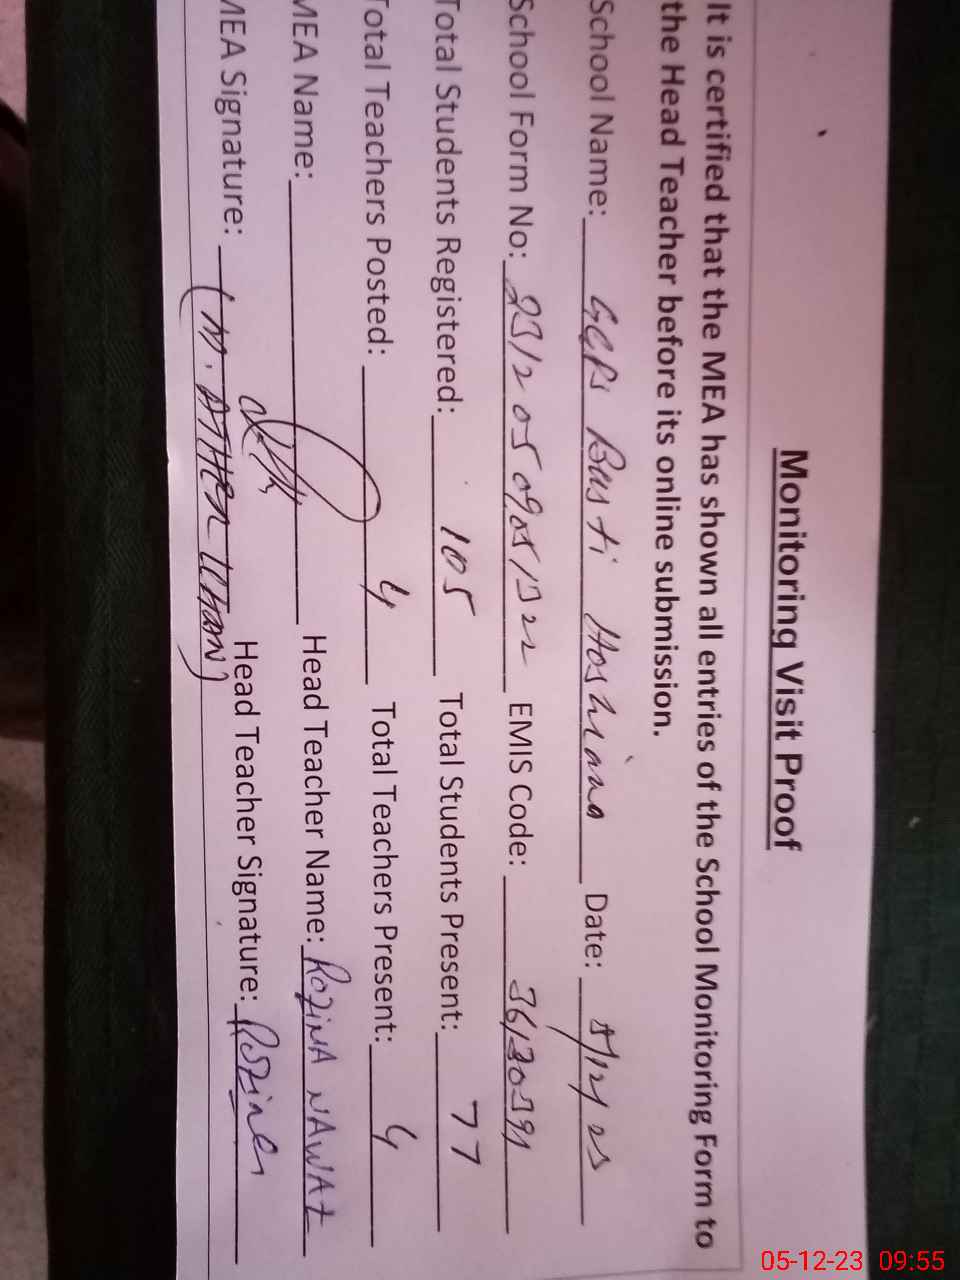 Monitoring Visit Proof
It is certified that the MEA has shown all entries of the School Monitoring Form to
the Head Teacher before its online submission.
School Name: Basti Date:
School Form No: EMIS Code:
Total Students Registered: 105 Total Students Present: 77
Total Teachers Posted: 4 Total Teachers Present: 4
MEA Name: Head Teacher Name: ROZINA NAWAZ
MEA Signature: Head Teacher Signature: Rozina
05-12-23 09:55